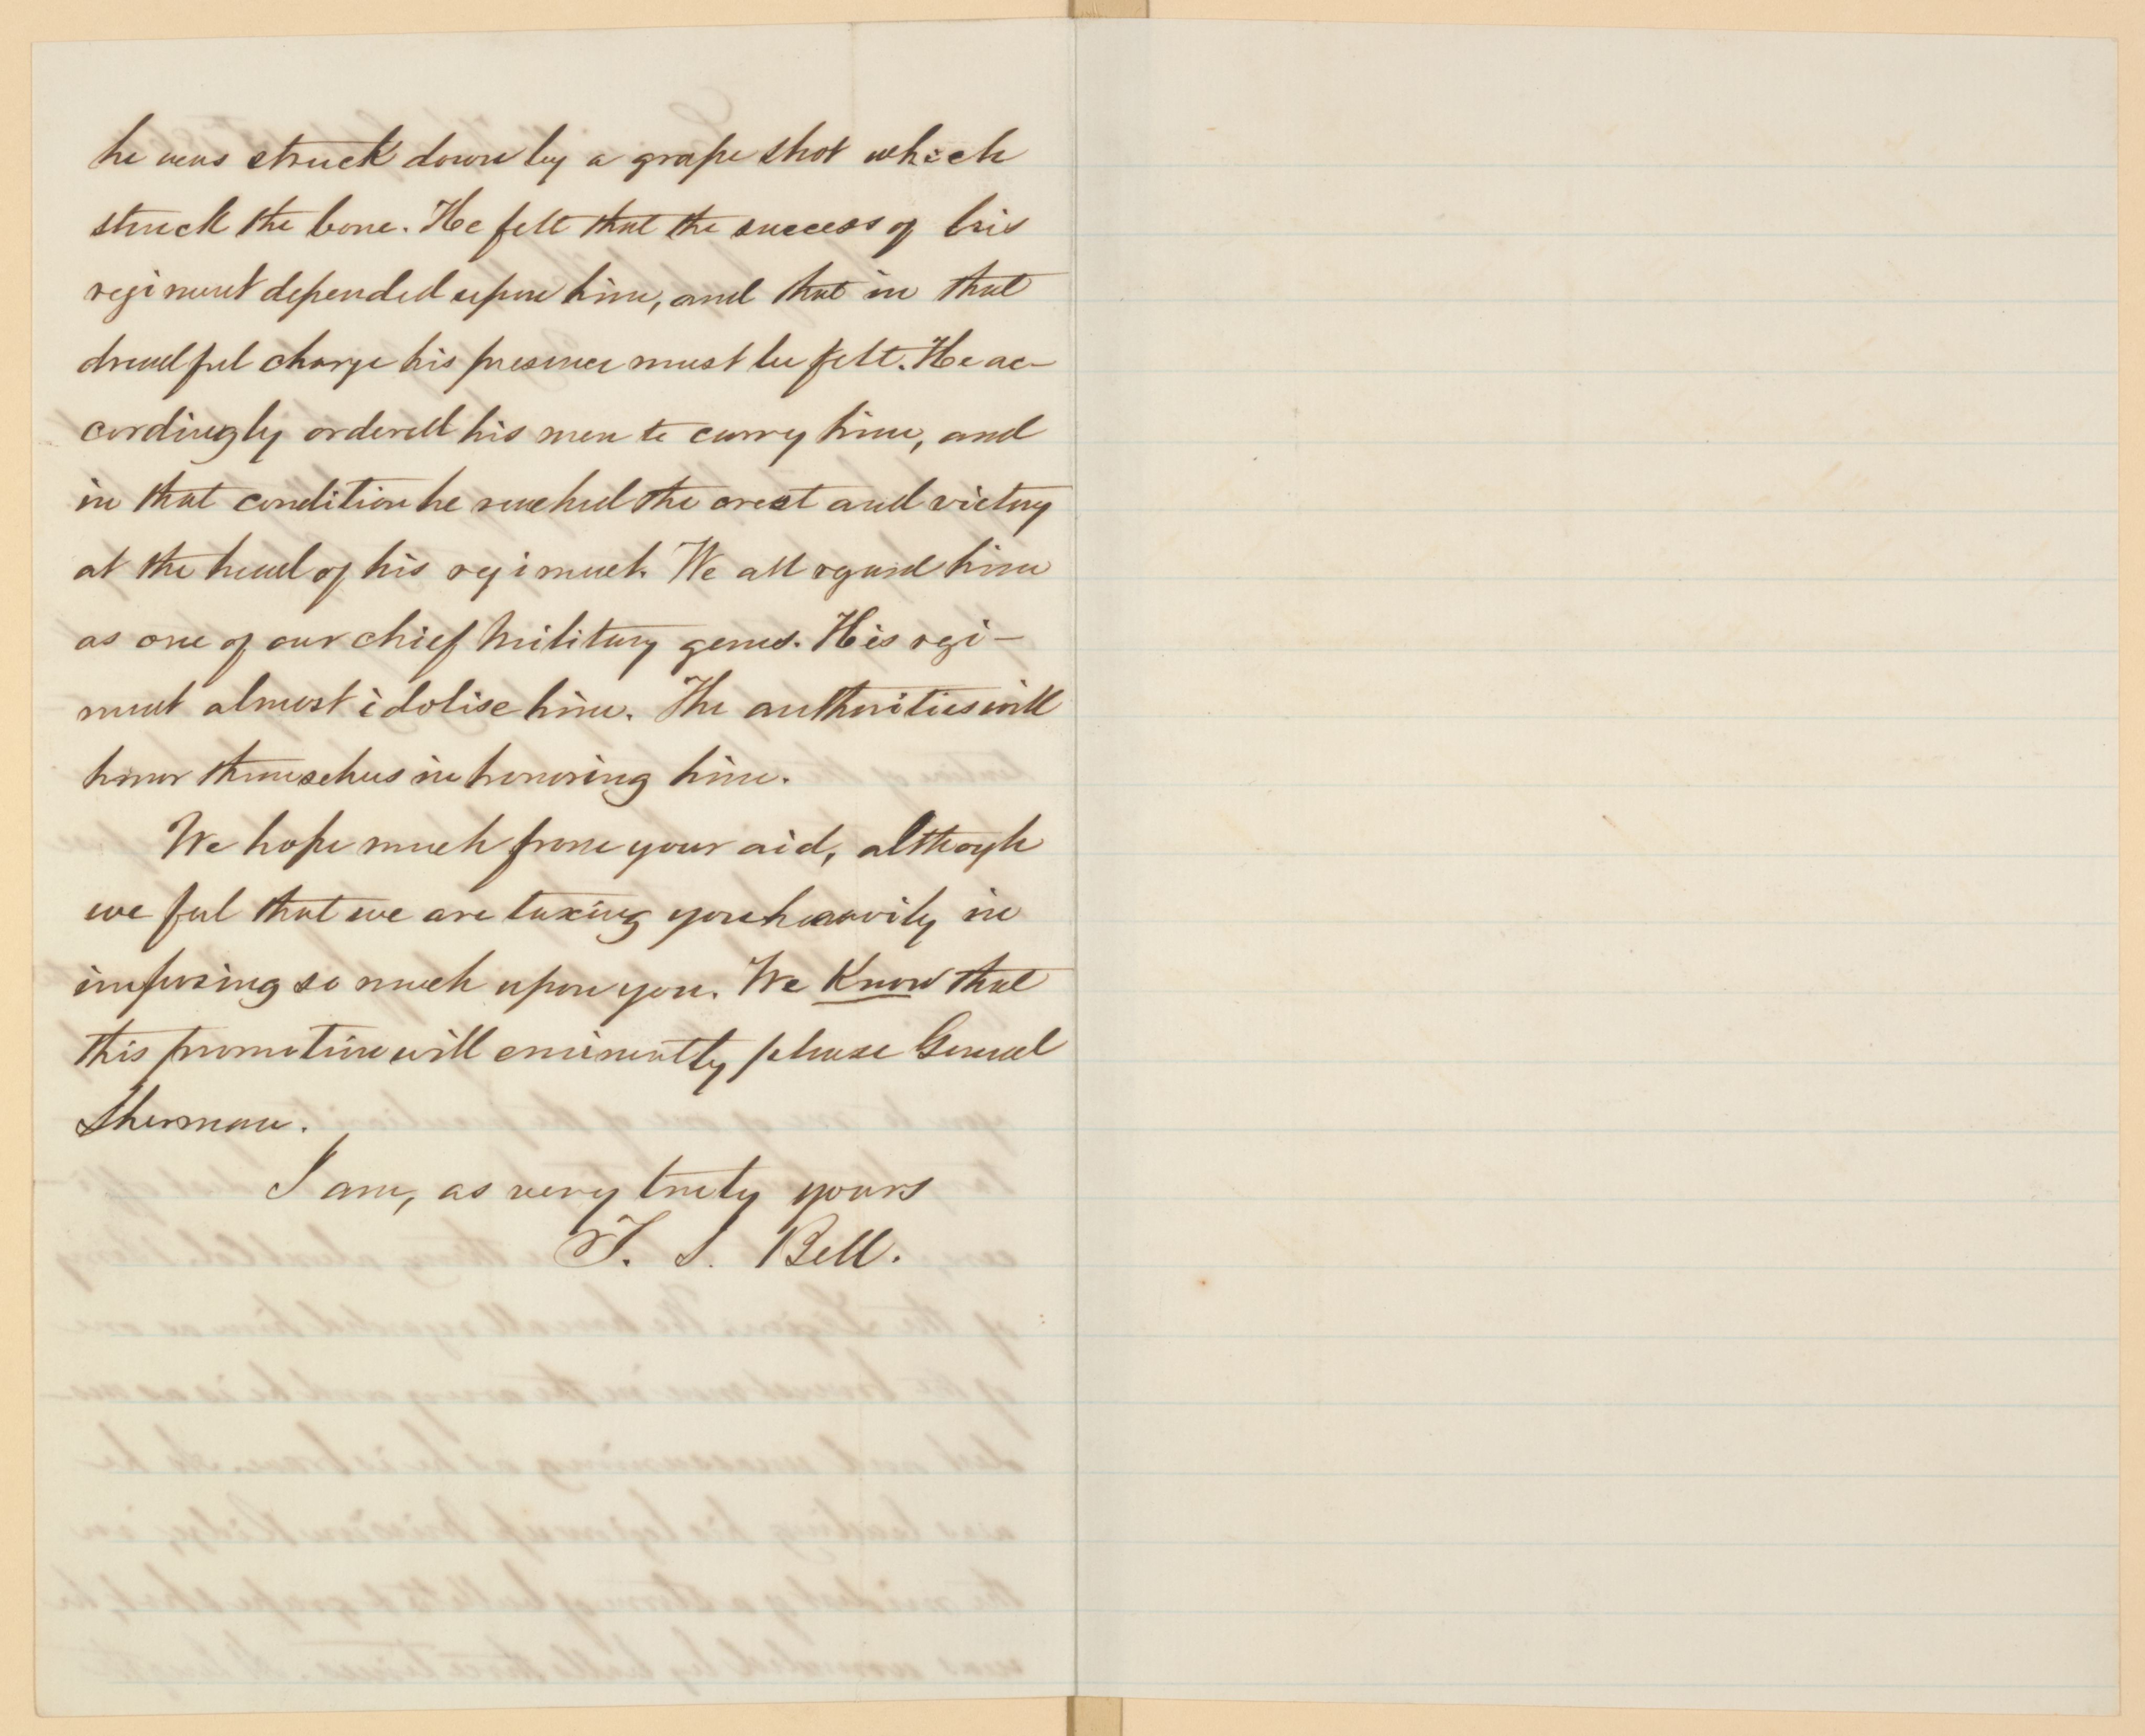 he was struck down by a grape shot which
struck the bone. He felt that the success of his
regiment depended upon him, and that in that
dreadful charge his presence must be felt. He ac-
cordingly ordered his men to carry him, and
in that condition he reached the crest and victory
at the head of his regiment. We all regard him
as one of our chief military gems. His regi-
ment almost idolise him. The authorities will
honor themselves in honoring him.
We hope much from your aid, although
we feel that we are taxing you heavily in
imposing so much upon you. We know that
this promotion will eminently please General
Sherman.
I am, as very truly yours
T. S. Bell.